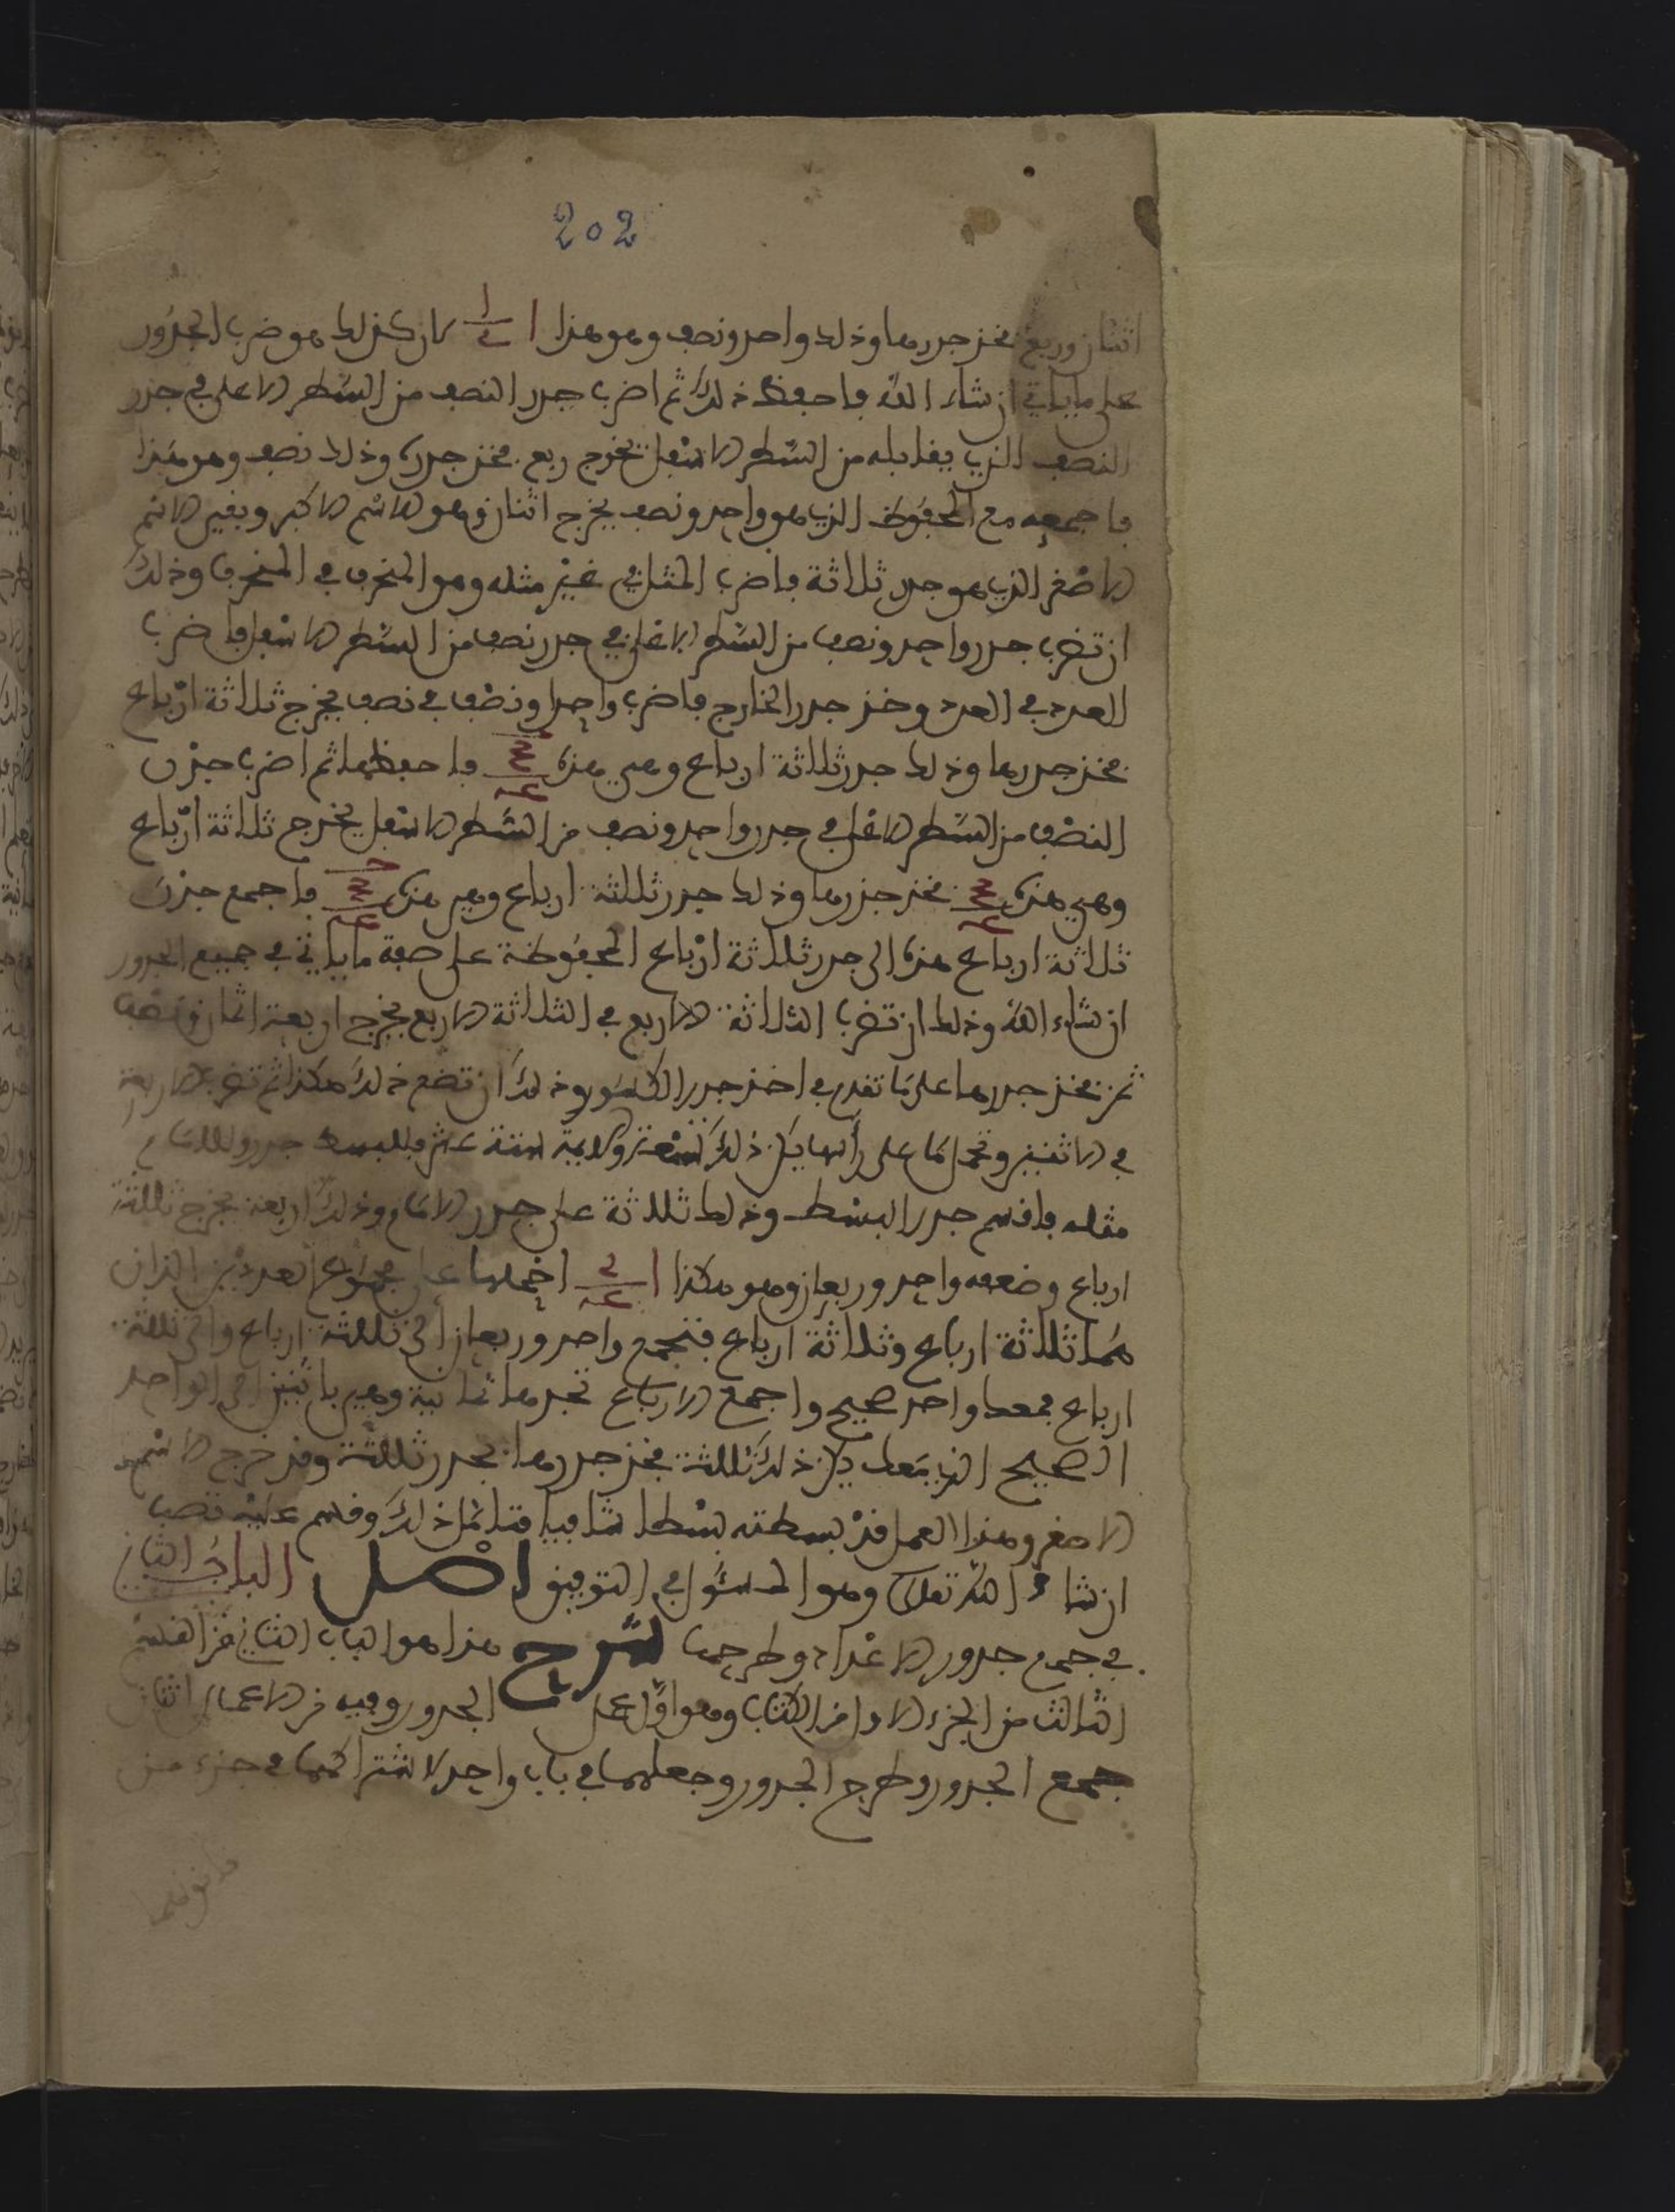 202
اثنان وربع فخذ جذرها وذلك واحد ونصف وهو هذا ا لان كذلك هو ضرب الجذور
على ما ياتي ان شاء الله فاحفظ ذلك ثم اضرب جذر النصف من السطر الاعلى في جذر
النصف الذي يقابله من السطر الاسفل يخرج ربع فخذ جذره وذلك نصف وهو هذا
فاجمعه مع المحفوظ الذي هو واحد ونصف يخرج اثنان وهو الاسم الاكبر وبقي الاسم
الاصغر الذي هو جذر ثلاثة فاضرب المثل في غير مثله وهو المنحرف في المنحرف وذلك
ان تضرب جذر واحد ونصف من السطر الاعلى في جذر نصف من السطر الاسفل فاضرب
العدد في العدد وخذ جذر الخارج فاضرب واحدا ونصف في نصف يخرج ثلاثة ارباع
فخذ جذرها وذلك جذر ثلاثة ارباع وهي هذه فاحفظها ثم اضرب جذر
النصف من السطر الاعلى في جذر واحد ونصف من السطر الاسفل يخرج ثلاثة ارباع
وهي هذه فخذ جذرها وذلك جذر ثلاثة ارباع وهي هذه فاجمع جذر
ثلاثة ارباع هذه الى جذر ثلاثة ارباع المحفوظة على صفة ما ياتي في جميع الجذور
ان شاء الله وذلك ان تضرب الثلاثة الاربع في الثلاثة الاربع يخرج اربعة اثمان ونصف
ثمن فخذ جذرها على ما تقدم في اخذ جذر الكسور وذلك ان تضع ذلك هكذا ثم تضرب الاربعة
في الاثنين وتحمل ما على رأسها يكن ذلك تسعة والايمة ستة عشر فللبسط جذر وللامام
مثله فاقسم جذر البسط وذلك ثلاثة على جذر الامام وذلك اربعة يخرج ثلاثة
ارباع وضعفه واحد وربعان وهو هكذا ا احملها على مجموع العددين اللذان
هما ثلاثة ارباع وثلاثة ارباع فتجمع واحد وربعان الى ثلاثة ارباع والى ثلاثة
ارباع فمعك واحد صحيح واجمع الارباع تجدها ثمانية وهي باثنين الى الواحد
الصحيح الذي معك يكن ذلك ثلاثة فخذ جذرها تجد جذر ثلاثة وقد خرج الاسم
الاصغر وهذا العمل قد بسطته بسطا شافيا فتامل ذلك وقس عليه تصب
ان شاء الله تعالى وهو المسئول في التوفيق اصل الباب الثاني
في جمع جذور الاعداد وطرحها شرح هذا هو الباب الثاني من القسم
الثالث من الجزء الاول من الكتاب وهو اول عمل الجذور وفيه من الاعمال اثنان
جمع الجذور وطرح الجذور وجعلهما في باب واحد لاشتراكهما في جزء من